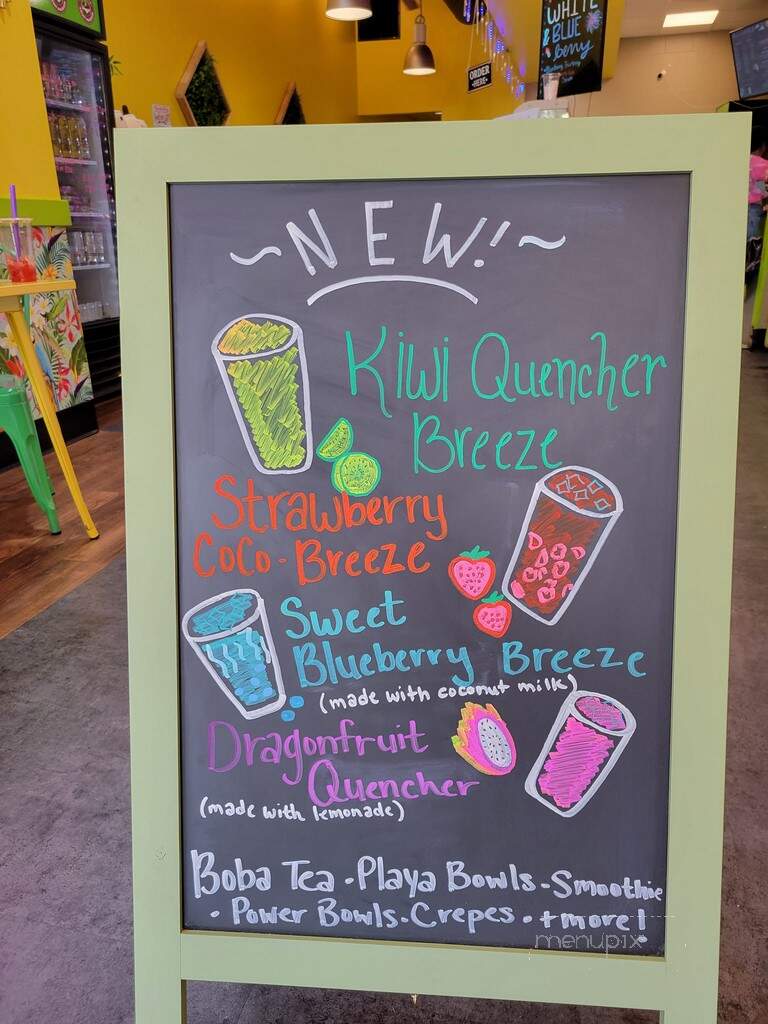 WHITE
& BLUE
berry
ORDER
HERE
~NEW!~
Kiwi Quencher
Breeze
Strawberry
CoCo-Breeze
Sweet
Blueberry Breeze
(made with coconut milk)
Dragonfruit
Quencher
(made with lemonade)
Boba Tea • Playa Bowls • Smoothie
• Power Bowls • Crepes • + more!
menupix